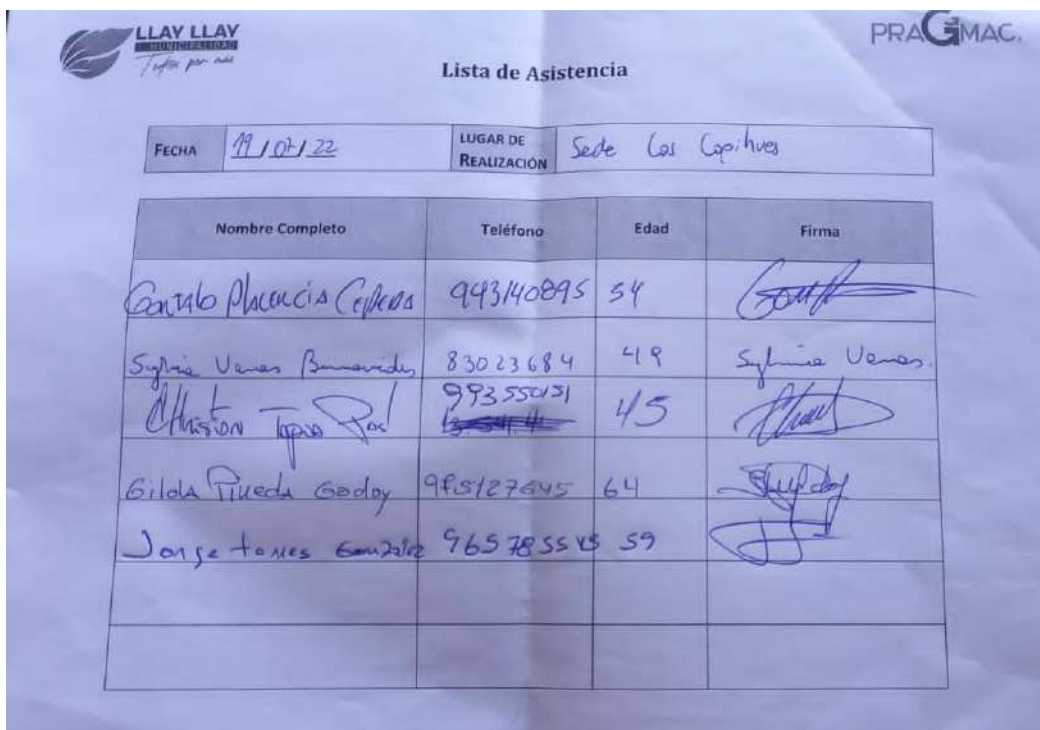 LLAY LLAY
I. MUNICIPALIDAD
Todos por más
PRAGMAC.
Lista de Asistencia
FECHA 19/07/22 LUGAR DE REALIZACIÓN Sede Los Copihues
Nombre Completo Teléfono Edad Firma
Gonzalo Placencia Cepeda 943140895 54
Sylvia Venas Benavides 83023684 49 Sylvia Venas.
Christian Tapia 993550151 45
Gilda Pineda Godoy 985127645 64
Jorge Torres González 59